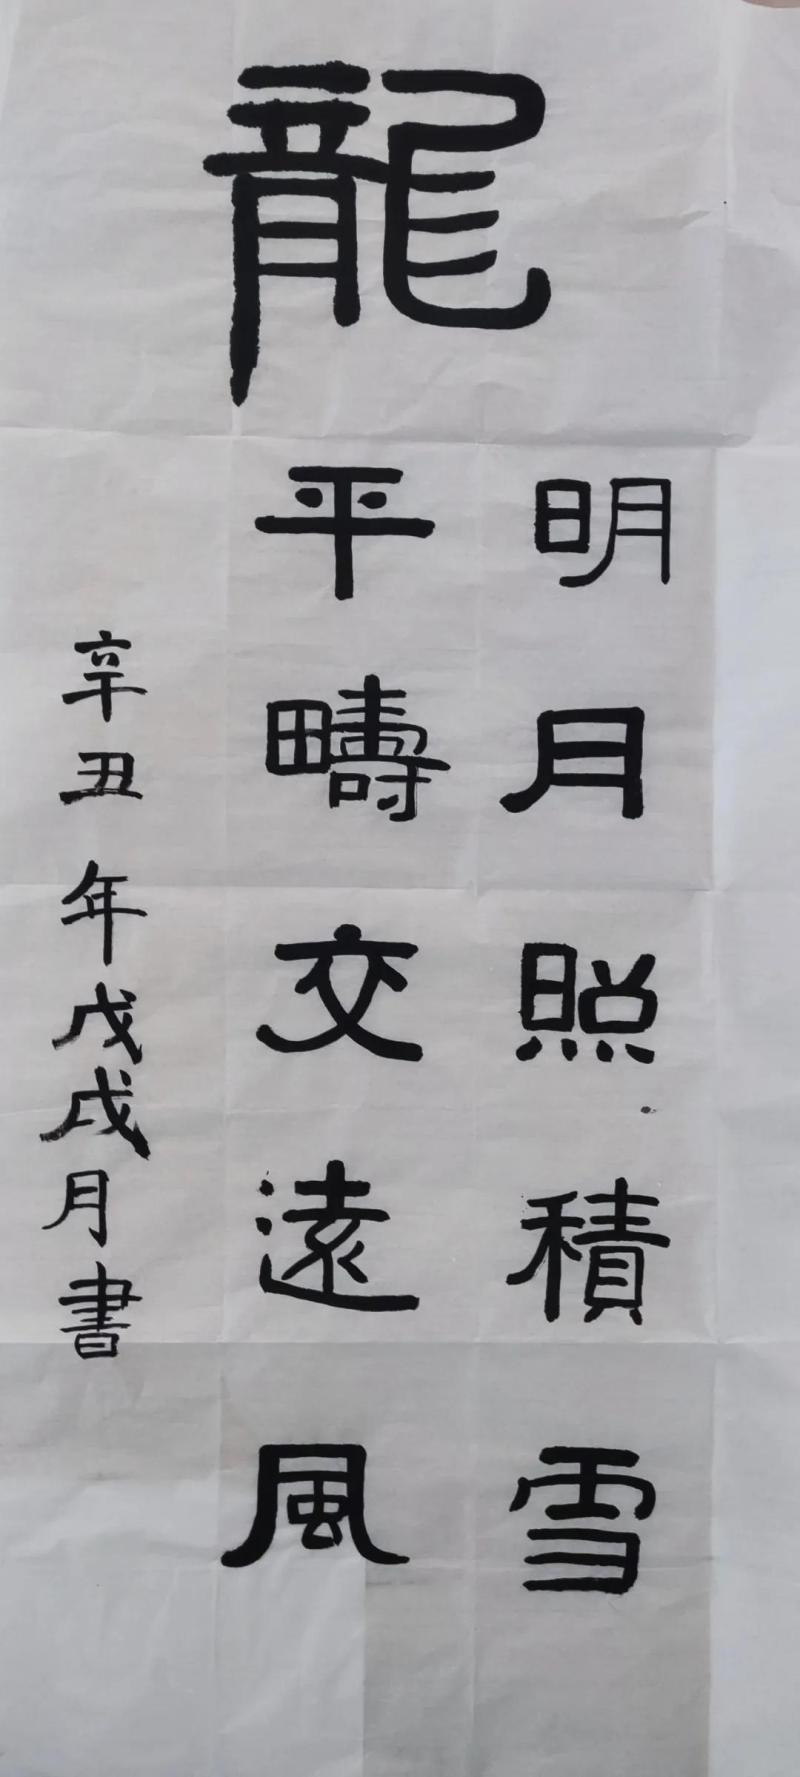 龍
明月照積雪
平疇交遠風
辛丑年戊戌月書